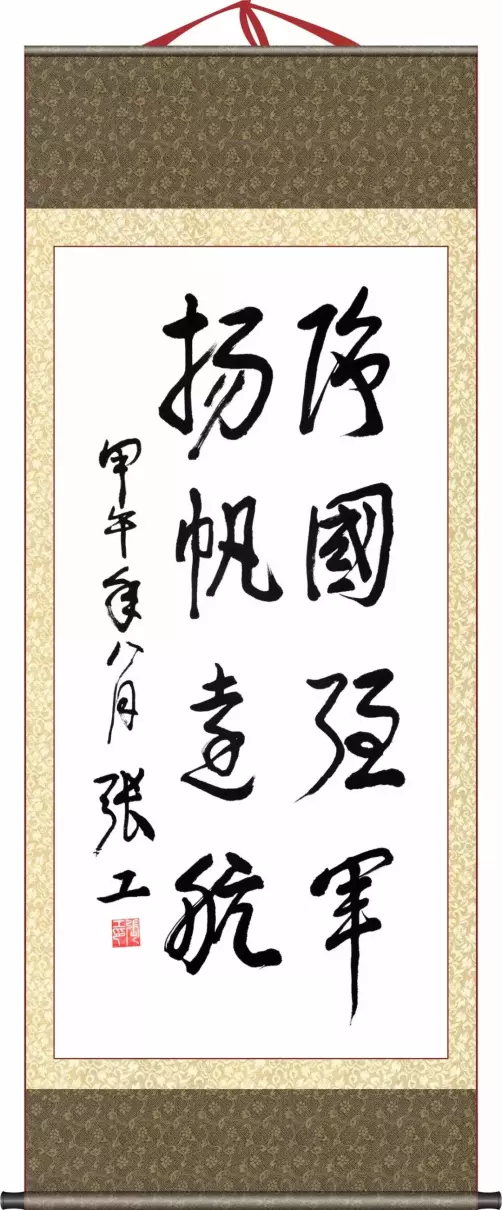 國强軍
揚帆遠航
甲午年八月 張工